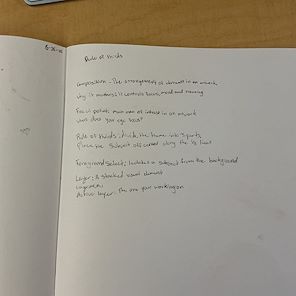 Rule of thirds
Composition - The arrangement of element in an artwork
why it matters: it controls focus, mood and meaning
Focal point: main area of interest in an artwork
where does your eye
Rule of thirds: divide the frame into 9 parts
Place the subject off center along the lines
Foreground select: Isolates a subject from the background
Layer: A stacked visual element
Active layer: the one your working on